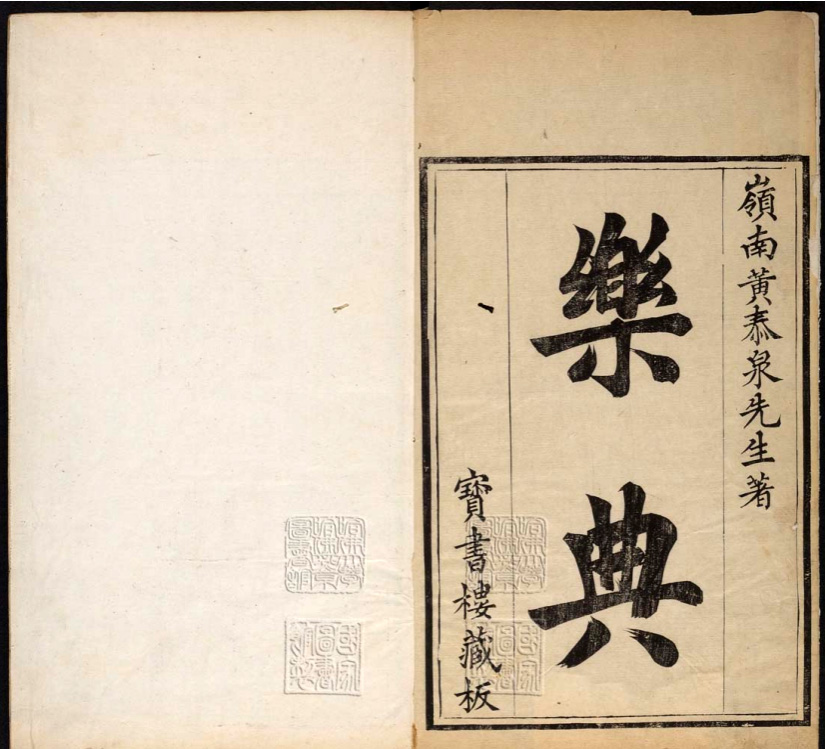 嶺南黃泰泉先生著
樂典
寶書樓藏板